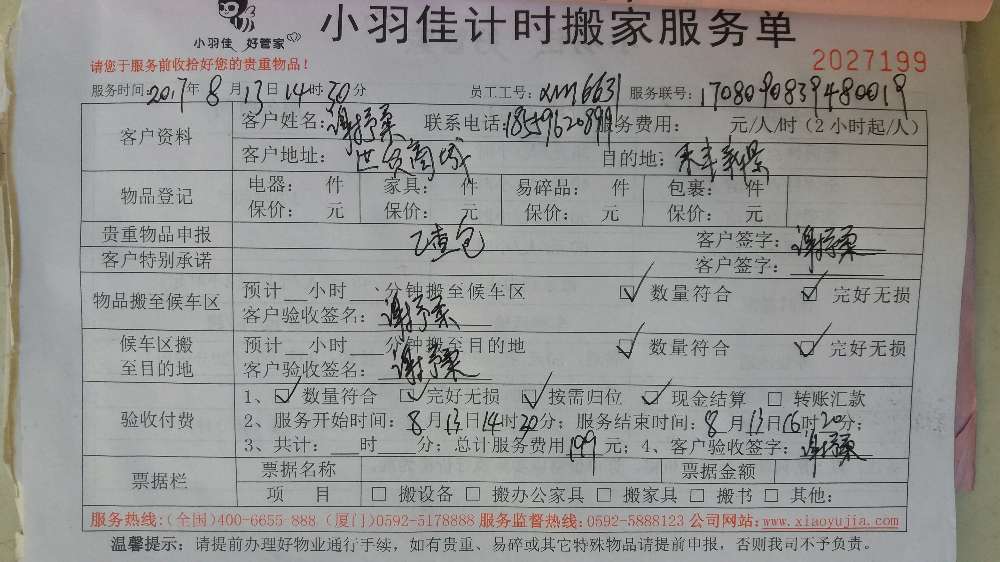 小羽佳计时搬家服务单
小羽佳 好管家
2027199
请您于服务前收拾好您的贵重物品!
服务时间:2017年8月13日14时30分 员工工号:XM6631 服务联号:1708090839480019
客户资料 客户姓名:谢抒柔 联系电话:18559620899 服务费用: 元/人/时(2小时起/人)
客户地址:世贸商城 目的地:禾丰新景
物品登记 电器: 件 家具: 件 易碎品: 件 包裹: 件
保价: 元 保价: 元 保价: 元 保价: 元
贵重物品申报 已查包 客户签字:谢抒柔
客户特别承诺 客户签字:
物品搬至候车区 预计__小时__分钟搬至候车区 ☑数量符合 ☑完好无损
客户验收签名:谢抒柔
候车区搬至目的地 预计__小时__分钟搬至目的地 ☑数量符合 ☑完好无损
客户验收签名:谢抒柔
验收付费 1、☑数量符合 ☑完好无损 ☑按需归位 ☑现金结算 □转账汇款
2、服务开始时间:8月13日14时20分;服务结束时间:8月13日16时20分;
3、共计:__时__分;总计服务费用199元;4、客户验收签字:谢抒柔
票据栏 票据名称 票据金额
项 目 □搬设备 □搬办公家具 □搬家具 □搬书 □其他:
服务热线:(全国)400-6655 888 (厦门)0592-5178888 服务监督热线:0592-5888123 公司网站:www.xiaoyujia.com
温馨提示:请提前办理好物业通行手续,如有贵重、易碎或其它特殊物品请提前申报,否则我司不予负责。